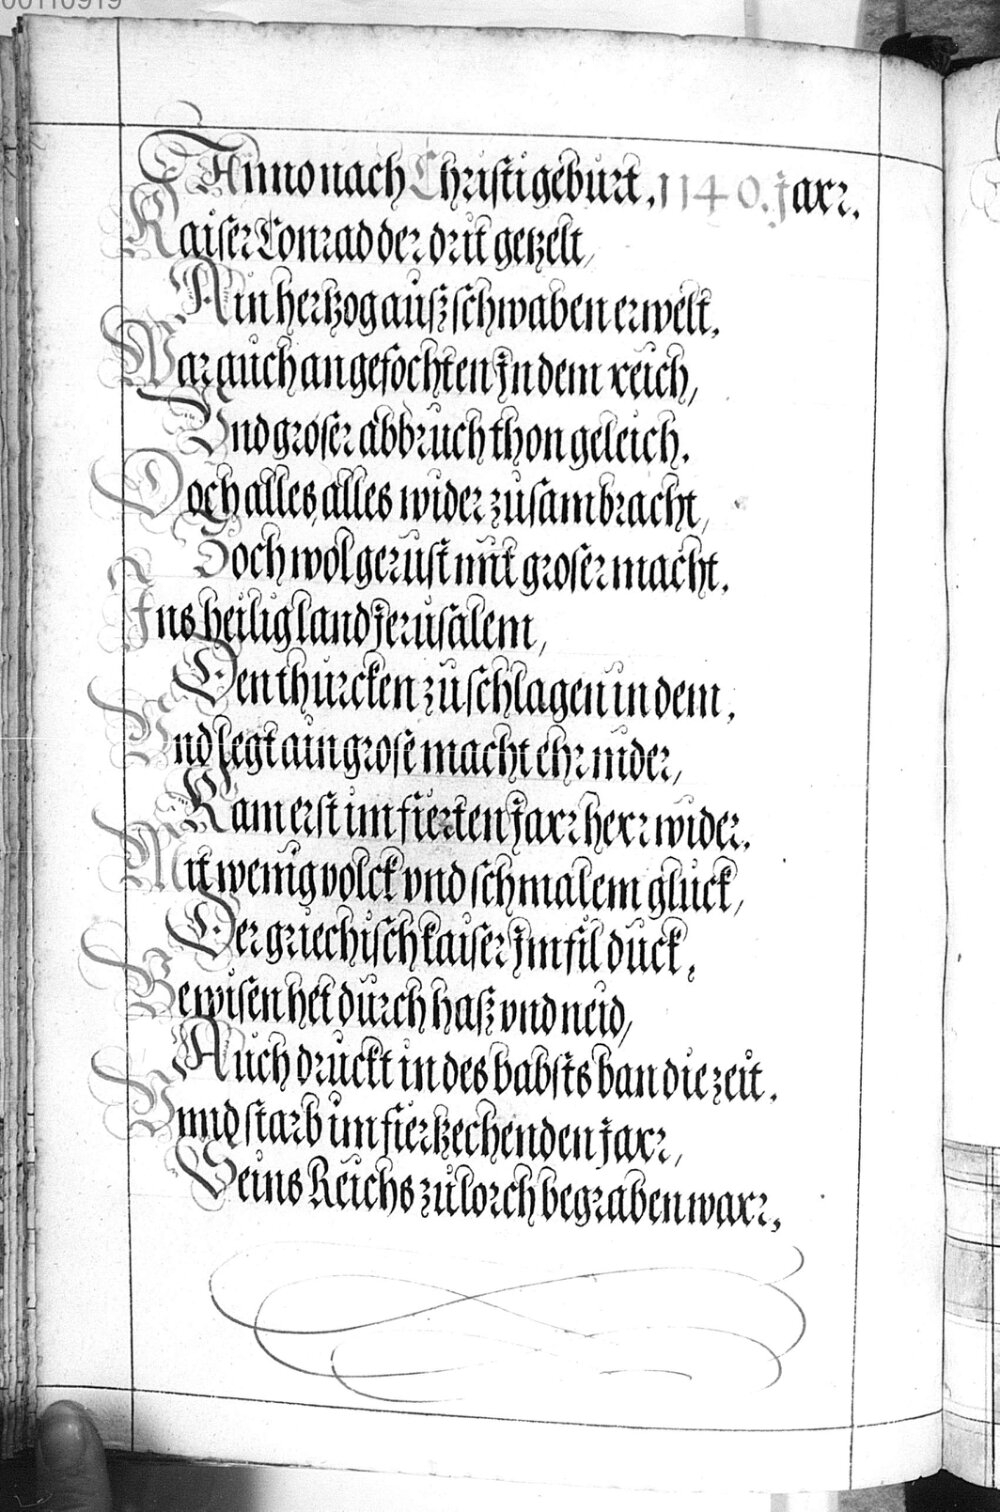 00110919
Anno nach Christi geburt, 1140. Jarr.
Kaiser Conrad der drit gezelt,
Ain hertzog auß schwaben erwelt,
War auch angefochten Jn dem reich,
Vnd groser abbruch thon geleich.
Doch alles, alles wider zusambracht,
Zoch wol gerust mit groser macht.
Jns heilig land Jerusalem,
Den thurcken zu schlagen in dem,
Vnd legt ain grose macht ehr nider,
Kam erst im fierten Jarr herr wider.
Mit wenig volck vnd schmalem gluck,
Der griechisch kaiser Jm fil duck,
Bewisen het durch haß vnd neid,
Auch druckt in des babsts ban die zeit.
Vnnd starb im fiertzechenden Jarr,
Seins Reichs zu lorch begraben warr,